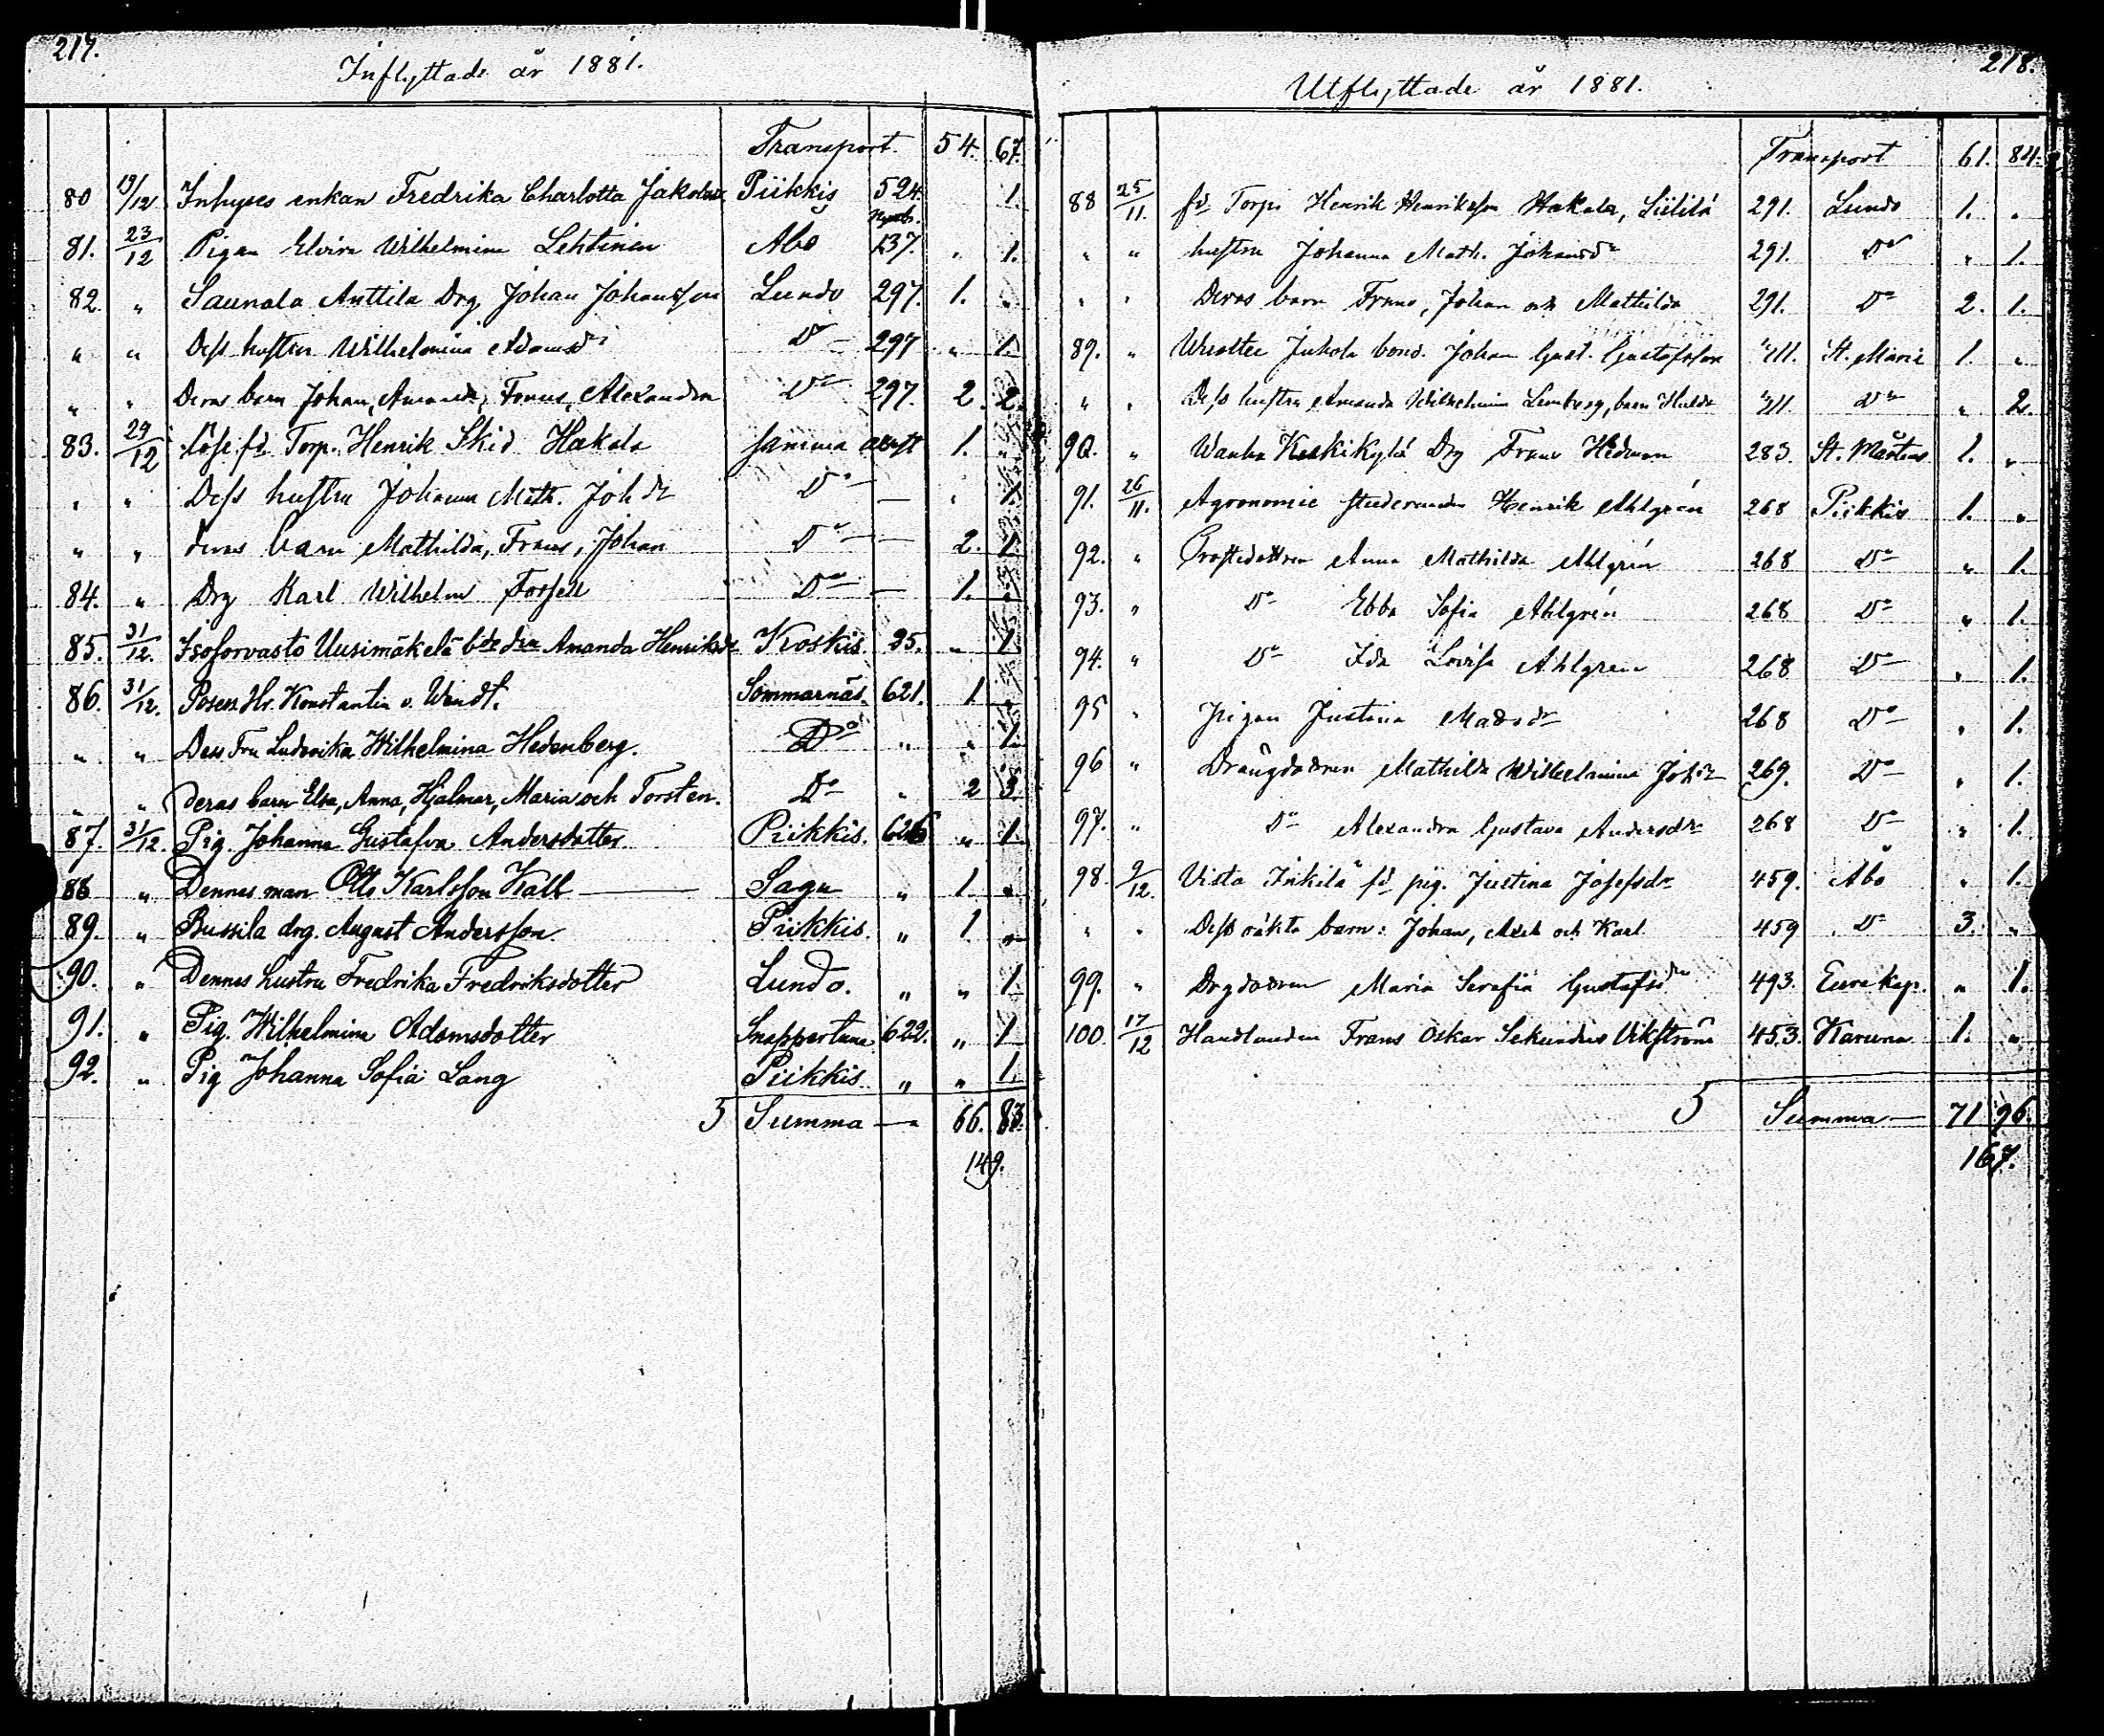 217.
Inflyttade år 1881.
Transport. 54. 67.
80 19/12 Inhyses enkan Fredrika Charlotta Jakobsdr Piikkis 524. 1.
81. 23/12 Pigan Elvira Wilhelmina Lehtinen Åbo 137. " 1.
82. " Saunala Anttila Drg Johan Johansson Lundo 297. 1. "
" " Dess hustru Wilhelmina Adamsdr Do 297 " 1.
" " Deras barn Johan, Amanda, Frans, Alexandra Do 297. 2. 2.
83. 29/12 löse fd Torp. Henrik Skid Hakala samma 1. "
" " Dess hustru Johanna Math. Johdr Do — " 1.
" " deras barn Mathilda, Frans, Johan Do — 2. 1.
84. " Drg Karl Wilhelm Forsell Do — 1. "
85. 31/12. Isosorvasto Uusimäkelä bdedrn Amanda Henriksdr Koskis 35. " 1.
86. 31/12. Posess. Hr. Konstantin v. Wendt. Sommarnäs. 621. 1 "
" " Dess Fru Ludovika Wilhelmina Hedenberg. Do " " 1.
" " deras barn Elsa, Anna, Hjalmar, Maria och Torsten. Do " 2 3.
87. 31/12. Pig. Johanna Gustafva Andersdotter Piikkis. 626 " 1.
88 " Dennes man Otto Karlsson Käll — Sagu " 1 "
89. " Bussila drg. August Andersson. Piikkis. " 1 "
90. " Dennes hustru Fredrika Fredriksdotter Lundo. " " 1.
91. " Pig. Wilhelmina Adamsdotter Snappertuna 622. " 1
92. " Pig Johanna Sofia Lang Piikkis. " " 1.
5 Summa — 66. 83.
149.
218.
Utflyttade år 1881.
Transport 61. 84.
88 25/11. fd Torp. Henrik Henriksson Hakala, Siililä 291. Lundo 1. "
" " hustru Johanna Math. Johansdr 291. Do " 1.
" " Deras barn Frans, Johan och Mathilda 291. Do 2. 1.
89. " Juhola bond. Johan Gust. Gustafsson St. Marie 1. "
" " Dess hustru Amanda Wilhelmina Lemberg, barn Hulda Do " 2.
90. " Wanha Koskikylä Drg Frans Hedman 283. St. Mårtens 1. "
91. 26/11. Agronomie studerande Henrik Ahlgrén 268 Piikkis 1. "
92. " Prostedottren Anna Mathilda Ahlgrén 268 Do " 1.
93. " Do Ebba Sofia Ahlgrén 268 Do " 1.
94. " Do Ida Lovisa Ahlgren 268 Do " 1.
95 " Pigan Justina Matsdr 268 Do " 1.
96 " Drängdottren Mathilda Wilhelmina Johdr 269. Do " 1.
97. " Do Alexandra Gustava Andersdr 268 Do " 1.
98. 9/12. Vista Inkilä fd pig. Justina Josefsdr 459. Åbo " 1.
" " Dess oäkta barn: Johan, Axel och Karl 459 Do 3. "
99. " Drgdottren Maria Serafia Gustafsdr 493. Eura Kap. " 1.
100 17/12 Handlanden Frans Oskar Sekundus Vikström 453. Karuna 1. "
5 Summa — 71. 96.
167.